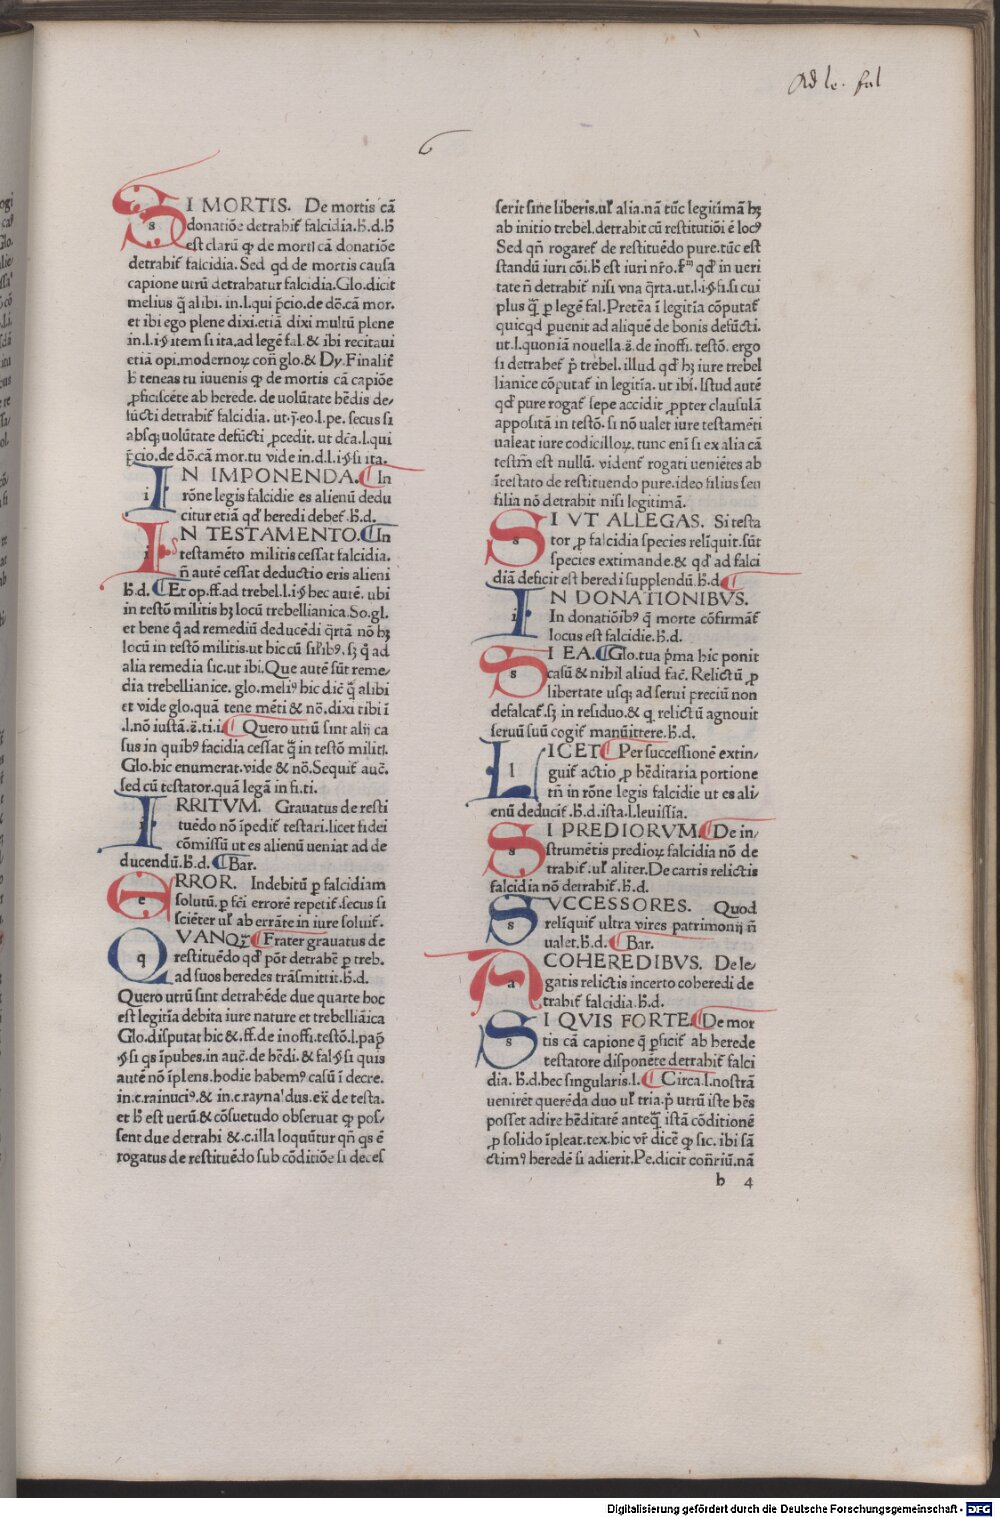 Ad le. fal
6
SI MORTIS. De mortis cā
donatiōe detrahit᷑ falcidia.h̄.d.h̄
est clarū ꝙ de morti cā donatiōe
detrahit᷑ falcidia. Sed qd de mortis causa
capione utrū detrahatur falcidia. Glo.dicit
melius q̄ alibi. in.l.qui p̄cio.de dō.cā mor.
et ibi ego plene dixi.etiā dixi multū plene
in.l.i.§ item si ita.ad legē fal. & ibi recitaui
etiā opi.modernoꝝ con̄ glo.& Dy. Finalit᷑
h̄ teneas tu iuuenis ꝙ de mortis cā capiōe
ꝓficiscēte ab herede. de uolūtate hēdis de-
fūcti detrahit᷑ falcidia. ut.j.eo.l.pe. secus si
absqꝫ uolūtate defūcti ꝓcedit. ut dc̄a.l.qui
p̄cio.de dō.cā mor.tu vide in.d.l.i.§ si ita.
IN IMPONENDA. In
rōne legis falcidie es alienū dedu
citur etiā qd' heredi debet᷑.h̄.d.
IN TESTAMENTO. In
testamēto militis cessat falcidia.
n̄ autē cessat deductio eris alieni
h̄.d. Et op.ff.ad trebel.l.i.§ hec autē. ubi
in testō militis hꝫ locū trebellianica.So.gl.
et bene q̄ ad remediū deducēdi q̄rtā nō hꝫ
locū in testō militis.ut hic cū sil'ibꝰ. sꝫ q̄ ad
alia remedia sic.ut ibi. Que autē sūt reme-
dia trebellianice. glo.meliꝰ hic dic̄ q̄ alibi
et vide glo.quā tene mēti & nō. dixi tibi ī
.l.nō iustā.ē.ti.i. Quero utrū sint alij ca
sus in quibꝰ facidia cessat q̄ in testō militi.
Glo.hic enumerat.vide & nō. Sequit᷑ auc̄.
sed cū testator.quā legā in fi.ti.
IRRITVM. Grauatus de resti
tuēdo nō īpedit᷑ testari.licet fidei
cōmissū ut es alienū ueniat ad de
ducendū.h̄.d. Bar.
ERROR. Indebitū ꝑ falcidiam
solutū.ꝑ fc̄i errorē repetit᷑.secus si
sciēter ul' ab errāte in iure soluit᷑.
QVANQꝪ Frater grauatus de
restituēdo qd' pōt detrahē ꝑ treb.
ad suos heredes trāsmittit.h̄.d.
Quero utrū sint detrahēde due quarte hoc
est legitīa debita iure nature et trebelliāica
Glo.disputat hic & .ff.de inoffi.testō.l.pap̄
.§ si qs īpubes.in auc̄.de hēdi.& fal.§ si quis
autē nō īplens. hodie habemꝰ casū ī decre.
in.c.rainuciꝰ.& in.c.raynaldus.ex̄ de testa.
et h̄ est uerū.& cōsuetudo obseruat ꝙ pos-
sent due detrahi & .c.illa loquūtur qn̄ qs ē
rogatus de restituēdo sub cōditiōe si deces
serit sine liberis.ul' alia.nā tūc legitimā hꝫ
ab initio trebel.detrahit cū restitutiōi ē locꝰ
Sed qn̄ rogaret᷑ de restituēdo pure.tūc est
standū iuri cōi.h̄ est iuri nr̄o. qd' in ueri
tate n̄ detrahit᷑ nisi vna q̄rta.ut.l.i.§ fi.si cui
plus q̄ ꝑ legē fal. Pretēa ī legitīa cōputat᷑
quicqd ꝓuenit ad aliquē de bonis defūcti.
ut.l.quoniā nouella.ē.de inoffi. testō. ergo
si detrahet᷑ p̄ trebel. illud qd' hꝫ iure trebel
lianice cōputat᷑ in legitīa. ut ibi. Istud autē
qd' pure rogat᷑ sepe accidit ꝓpter clausulā
appositā in testō. si nō ualet iure testamēti
ualeat iure codicilloꝝ. tunc enī si ex alia cā
testm̄ est nullū. vident᷑ rogati ueniētes ab
ītestato de restituendo pure.ideo filius seu
filia nō detrahit nisi legitimā.
SI VT ALLEGAS. Si testa
tor ꝓ falcidia species relīquit.sūt
species extimande.& qd' ad falci
diā deficit est heredi supplendū.h̄.d.
IN DONATIONIBVS.
In donatiōibꝰ q̄ morte cōfirmāt᷑
locus est falcidie.h̄.d.
SI EA. Glo.tua p̄ma hic ponit
casū & nihil aliud fac̄. Relictū ꝓ
libertate usqꝫ ad serui preciū non
defalcat᷑.sꝫ in residuo.& q relictū agnouit
seruū suū cogit᷑ manūittere.h̄.d.
LICET Per successionē extin-
guit᷑ actio ꝓ hēditaria portione
tn̄ in rōne legis falcidie ut es ali-
enū deducit᷑.h̄.d.ista.l.leuissīa.
SI PREDIORVM. De in-
strumētis predioꝝ falcidia nō de
trahit᷑.ul' aliter. De cartis relictis
falcidia nō detrahit᷑.h̄.d.
SVCCESSORES. Quod
relīquit᷑ ultra vires patrimonij n̄
ualet.h̄.d. Bar.
A COHEREDIBVS. De le-
gatis relictis incerto coheredi de
trahit᷑ falcidia.h̄.d.
SI QVIS FORTE. De mor
tis cā capione q̄ ꝓficit᷑ ab herede
testatore disponēte detrahit᷑ falci
dia. h̄.d.hec singularis.l. Circa.l.nostrā
ueniret querēda duo ul' tria.p̄ utrū iste hēs
posset adire hēditatē anteq̄ istā cōditionē
ꝓ solido īpleat.tex.hic vr̄ dicē ꝙ sic. ibi sā
ctimꝰ heredē si adierit.Pe.dicit con̄riū.nā
b 4
Digitalisierung gefördert durch die Deutsche Forschungsgemeinschaft - DFG